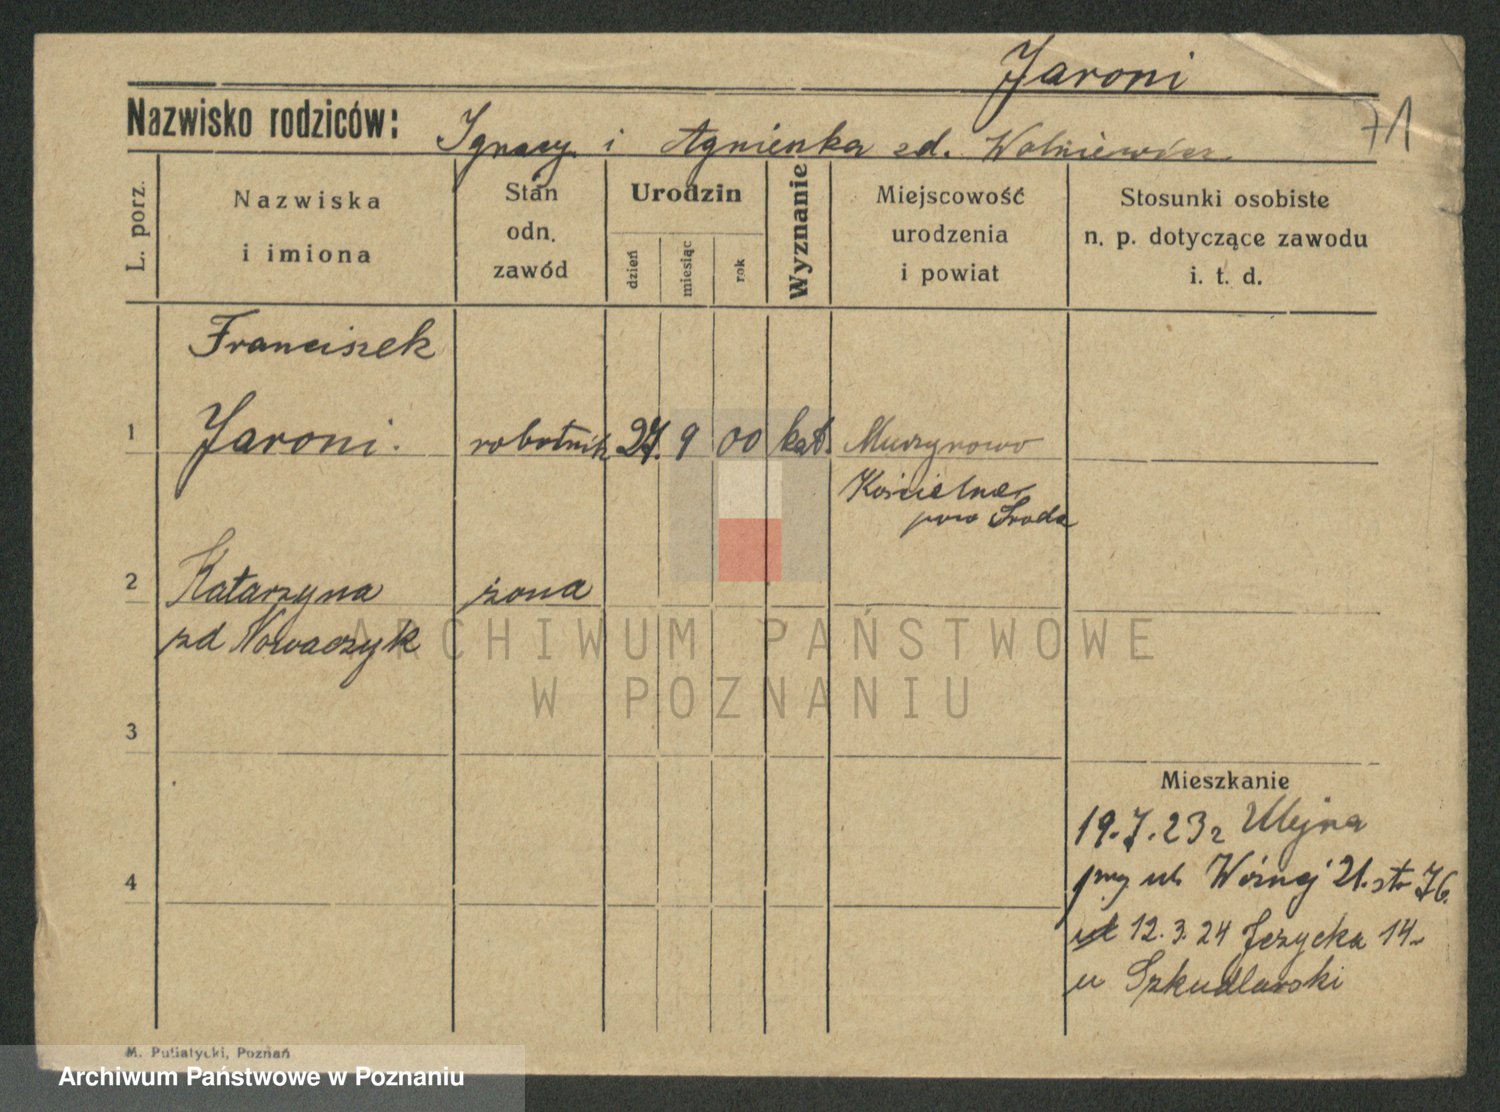 Jaroni
71
Nazwisko rodziców: Ignacy i Agnieszka zd. Wolniewicz
L. porz.
Nazwiska
i imiona
Stan
odn.
zawód
Urodzin
dzień
miesiąc
rok
Wyznanie
Miejscowość
urodzenia
i powiat
Stosunki osobiste
n. p. dotyczące zawodu
i. t. d.
Franciszek
1 Jaroni. robotnik 27. 9 00 kat. Murzynowo
Kościelne
pow Środa
2 Katarzyna żona
zd Nowaczyk
ARCHIWUM PAŃSTWOWE
W POZNANIU
3
Mieszkanie
19.7.23 r Ulejna
ul. Woźnej 21. str 76.
4
12.3.24 Jeżycka 14
u Szkudlarski
M. Putiatycki, Poznań
Archiwum Państwowe w Poznaniu